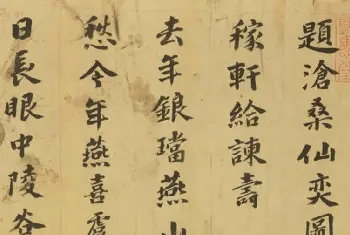 題滄桑仙奕圖
稼軒給諫壽
去年銀璫燕山
愁今年燕喜虞
日長眼中陵谷